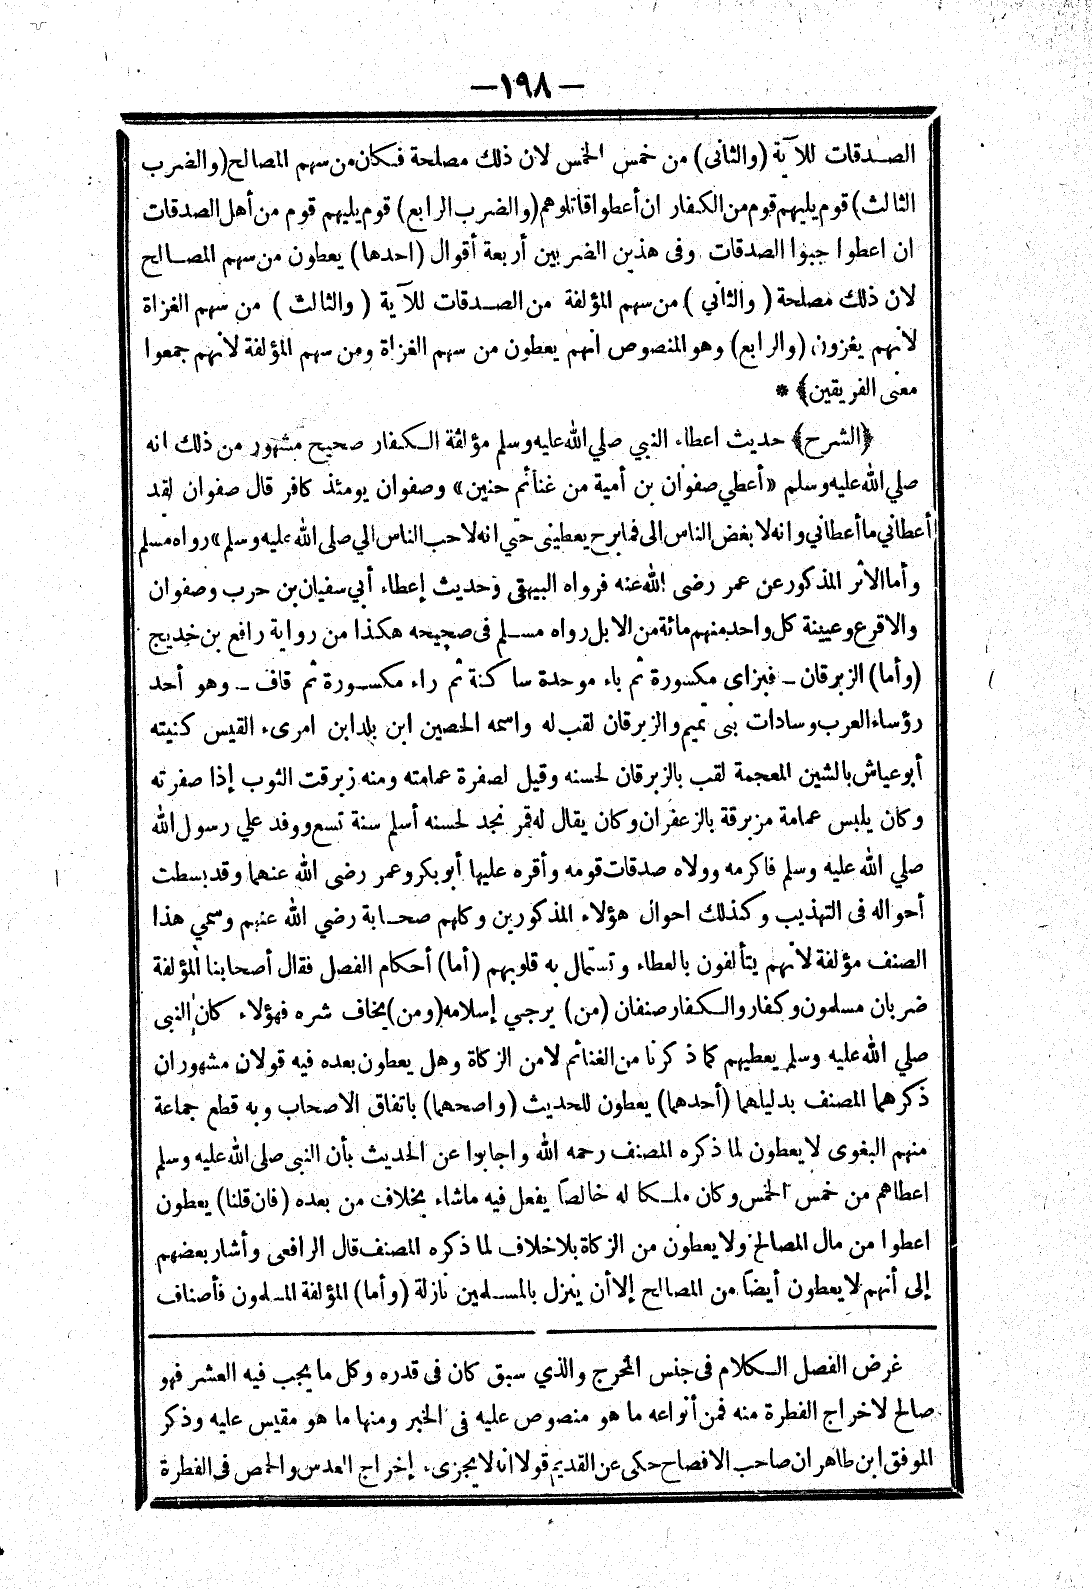 —١٩٨—
الصدقات للآية (والثاني) من خمس الخمس لان ذلك مصلحة فكان من سهم المصالح (والضرب
الثالث) قوم يليهم قوم من الكفار ان أعطوا قاتلوهم (والضرب الرابع) قوم يليهم قوم من أهل الصدقات
ان اعطوا جبوا الصدقات وفى هذين الضربين أربعة أقوال (احدها) يعطون من سهم المصالح
لان ذلك مصلحة (والثاني) من سهم المؤلفة من الصدقات للآية (والثالث) من سهم الغزاة
لأنهم يغزون (والرابع) وهو المنصوص انهم يعطون من سهم الغزاة ومن سهم المؤلفة لانهم جمعوا
معنى الفريقين﴾ *
﴿الشرح﴾ حديث اعطاء النبي صلي الله عليه وسلم مؤلفة الكفار صحيح مشهور من ذلك انه
صلي الله عليه وسلم «أعطي صفوان بن أمية من غنائم حنين» وصفوان يومئذ كافر قال صفوان لقد
أعطاني ما أعطاني وانه لابغض الناس الى فما برح يعطينى حتي انه لاحب الناس الي صلى الله عليه وسلم» رواه مسلم
وأما الأثر المذكور عن عمر رضى الله عنه فرواه البيهقى وحديث إعطاء أبي سفيان بن حرب وصفوان
والاقرع وعيينة كل واحد منهم مائة من الابل رواه مسلم فى صحيحه هكذا من رواية رافع بن خديج
(وأما) الزبرقان ـ فبزاى مكسورة ثم باء موحدة ساكنة ثم راء مكسورة ثم قاف ـ وهو أحد
رؤساء العرب وسادات بنى تميم والزبرقان لقب له واسمه الحصين ابن بدر ابن امرىء القيس كنيته
أبو عياش بالشين المعجمة لقب بالزبرقان لحسنه وقيل لصفرة عمامته ومنه زبرقت الثوب إذا صفرته
وكان يلبس عمامة مزبرقة بالزعفران وكان يقال له قمر نجد لحسنه أسلم سنة تسع ووفد علي رسول الله
صلي الله عليه وسلم فاكرمه وولاه صدقات قومه وأقره عليها أبو بكر وعمر رضى الله عنهما وقد بسطت
أحواله فى التهذيب وكذلك احوال هؤلاء المذكورين وكلهم صحابة رضي الله عنهم وسمي هذا
الصنف مؤلفة لأنهم يتألفون بالعطاء وتستمال به قلوبهم (أما) أحكام الفصل فقال أصحابنا المؤلفة
ضربان مسلمون وكفار والكفار صنفان (من) يرجي إسلامه (ومن) يخاف شره فهؤلاء كان النبى
صلي الله عليه وسلم يعطيهم كما ذكرنا من الغنائم لا من الزكاة وهل يعطون بعده فيه قولان مشهوران
ذكرهما المصنف بدليلهما (أحدهما) يعطون للحديث (واصحهما) باتفاق الاصحاب وبه قطع جماعة
منهم البغوى لا يعطون لما ذكره المصنف رحمه الله واجابوا عن الحديث بأن النبى صلى الله عليه وسلم
اعطاهم من خمس الخمس وكان ملكا له خالصاً يفعل فيه ماشاء بخلاف من بعده (فان قلنا) يعطون
اعطوا من مال المصالح ولا يعطون من الزكاة بلا خلاف لما ذكره المصنف قال الرافعى وأشار بعضهم
إلى أنهم لا يعطون أيضاً من المصالح إلا أن ينزل بالمسلمين نازلة (وأما) المؤلفة المسلمون فأصناف
غرض الفصل الكلام فى جنس المخرج والذي سبق كان فى قدره وكل ما يجب فيه العشر فهو
صالح لاخراج الفطرة منه فمن أنواعه ما هو منصوص عليه فى الخبر ومنها ما هو مقيس عليه وذكر
الموفق ابن طاهر ان صاحب الافصاح حكى عن القديم قولا انه لا يجزىء إخراج العدس والحمص فى الفطرة